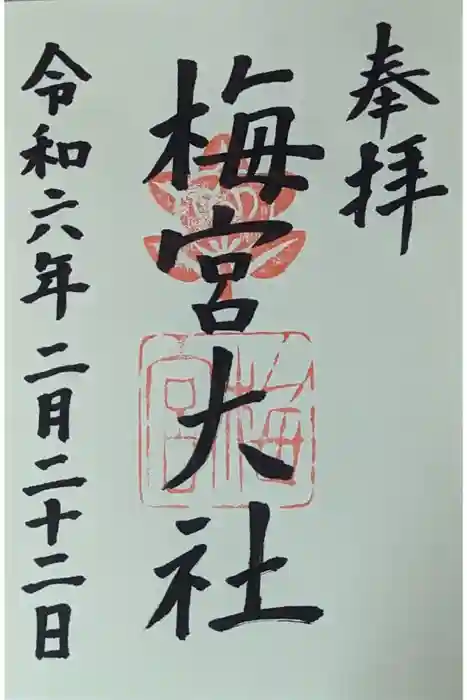 奉拝
梅宮大社
梅宮
令和六年二月二十二日